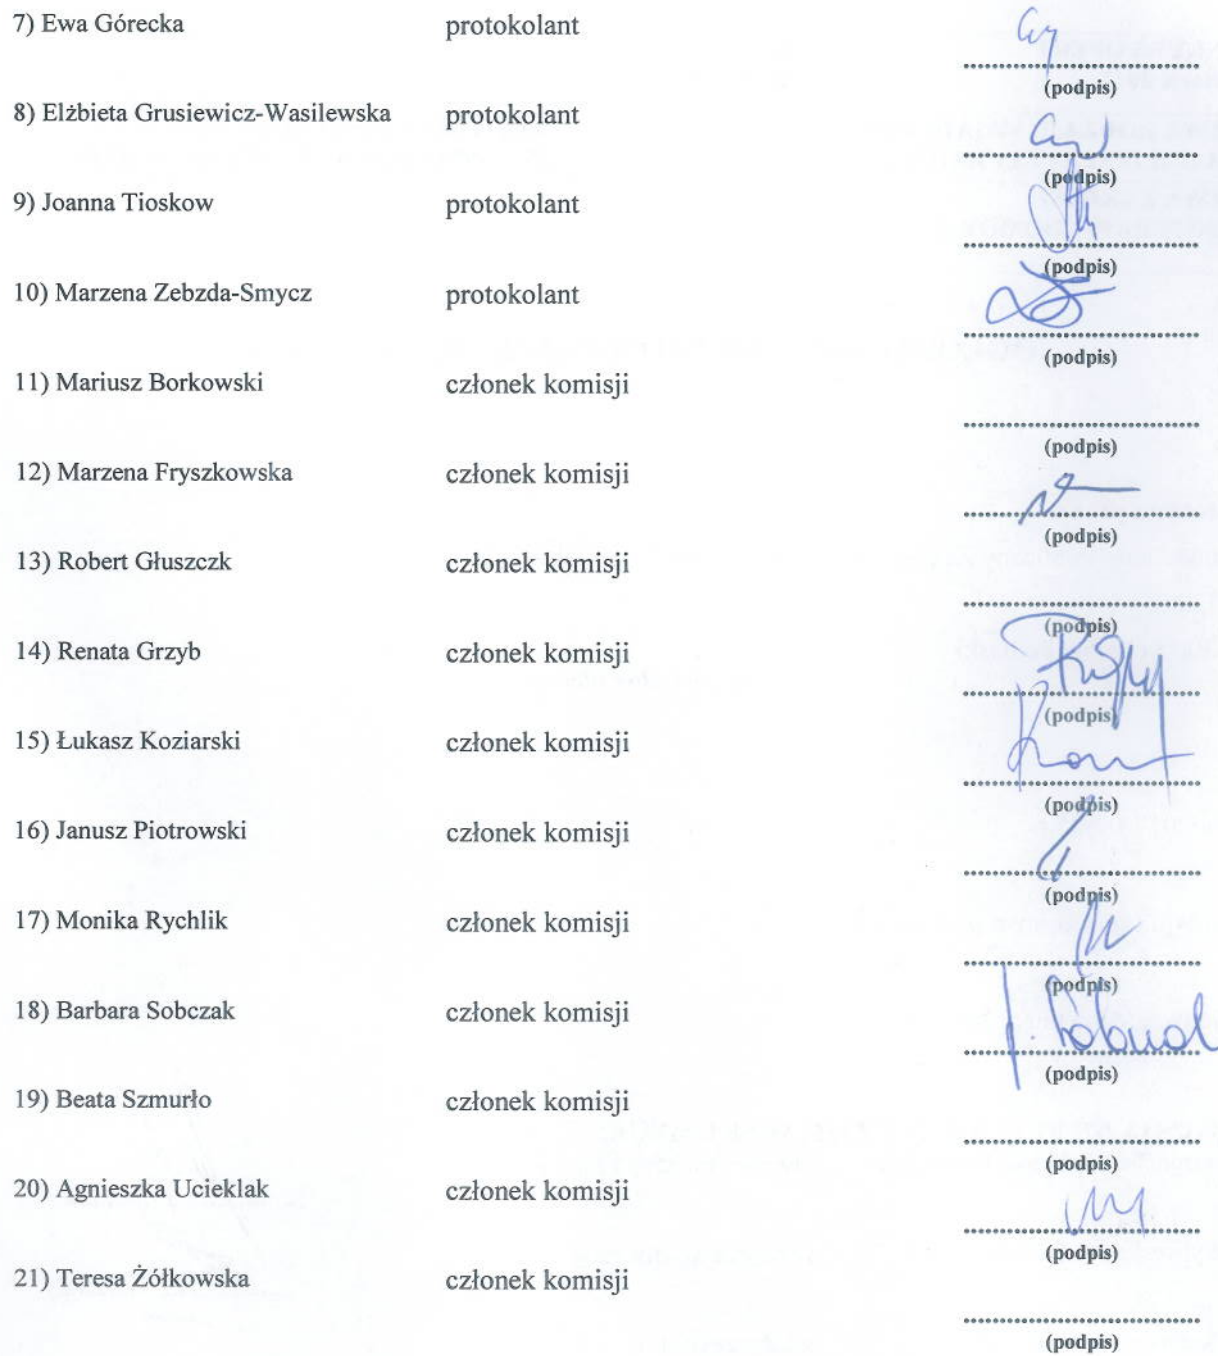 7) Ewa Górecka protokolant
(podpis)
8) Elżbieta Grusiewicz-Wasilewska protokolant
(podpis)
9) Joanna Tioskow protokolant
(podpis)
10) Marzena Zebzda-Smycz protokolant
(podpis)
11) Mariusz Borkowski członek komisji
(podpis)
12) Marzena Fryszkowska członek komisji
(podpis)
13) Robert Głuszczk członek komisji
(podpis)
14) Renata Grzyb członek komisji
(podpis)
15) Łukasz Koziarski członek komisji
(podpis)
16) Janusz Piotrowski członek komisji
(podpis)
17) Monika Rychlik członek komisji
(podpis)
18) Barbara Sobczak członek komisji
(podpis)
19) Beata Szmurło członek komisji
(podpis)
20) Agnieszka Ucieklak członek komisji
(podpis)
21) Teresa Żółkowska członek komisji
(podpis)